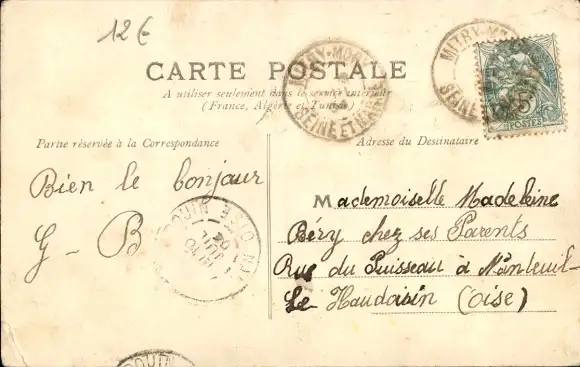 12€
CARTE POSTALE
A utiliser seulement dans le service intérieur
(France, Algérie et Tunisie)
MITRY-MORY
SEINE ET MARNE
MITRY-M
SEINE
5c
POSTES
Partie réservée à la Correspondance
Adresse du Destinataire
Bien le bonjour
G - B
Mademoiselle Madeleine
Béry chez ses Parents
Rue du Puisseau à Nanteuil-
Le Haudouin (Oise)
OUIN
OISE
JUIL
04
DOUIN